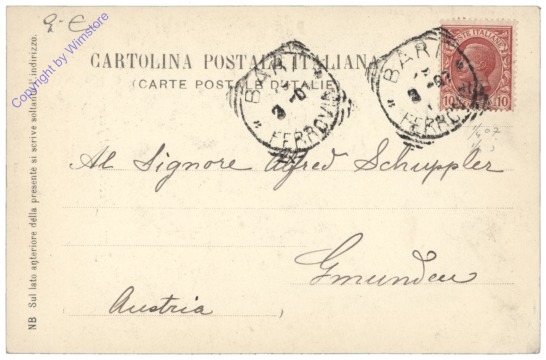 9.- €
Copyright by Wimstore
CARTOLINA POSTALE ITALIANA
(CARTE POSTALE D'ITALIE)
POSTE ITALIANE
10 10
BARI
FERROVIA
BARI
FERROVIA
Al Signore Alfred Schuppler
Gmunden
Austria
NB Sul lato anteriore della presente si scrive soltanto l'indirizzo.